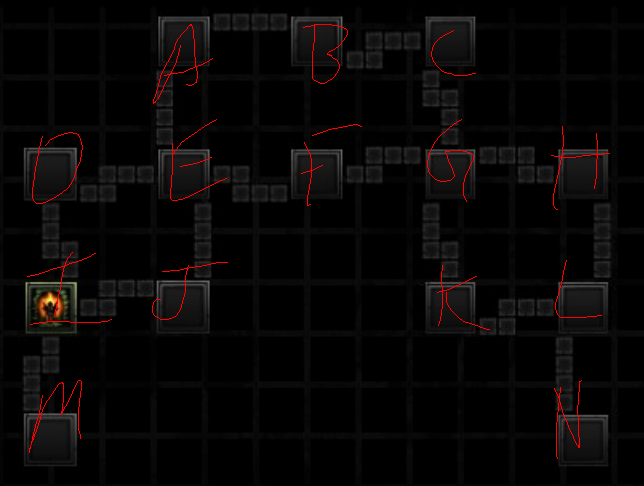 A B C
D E F G H
I J K L
M N